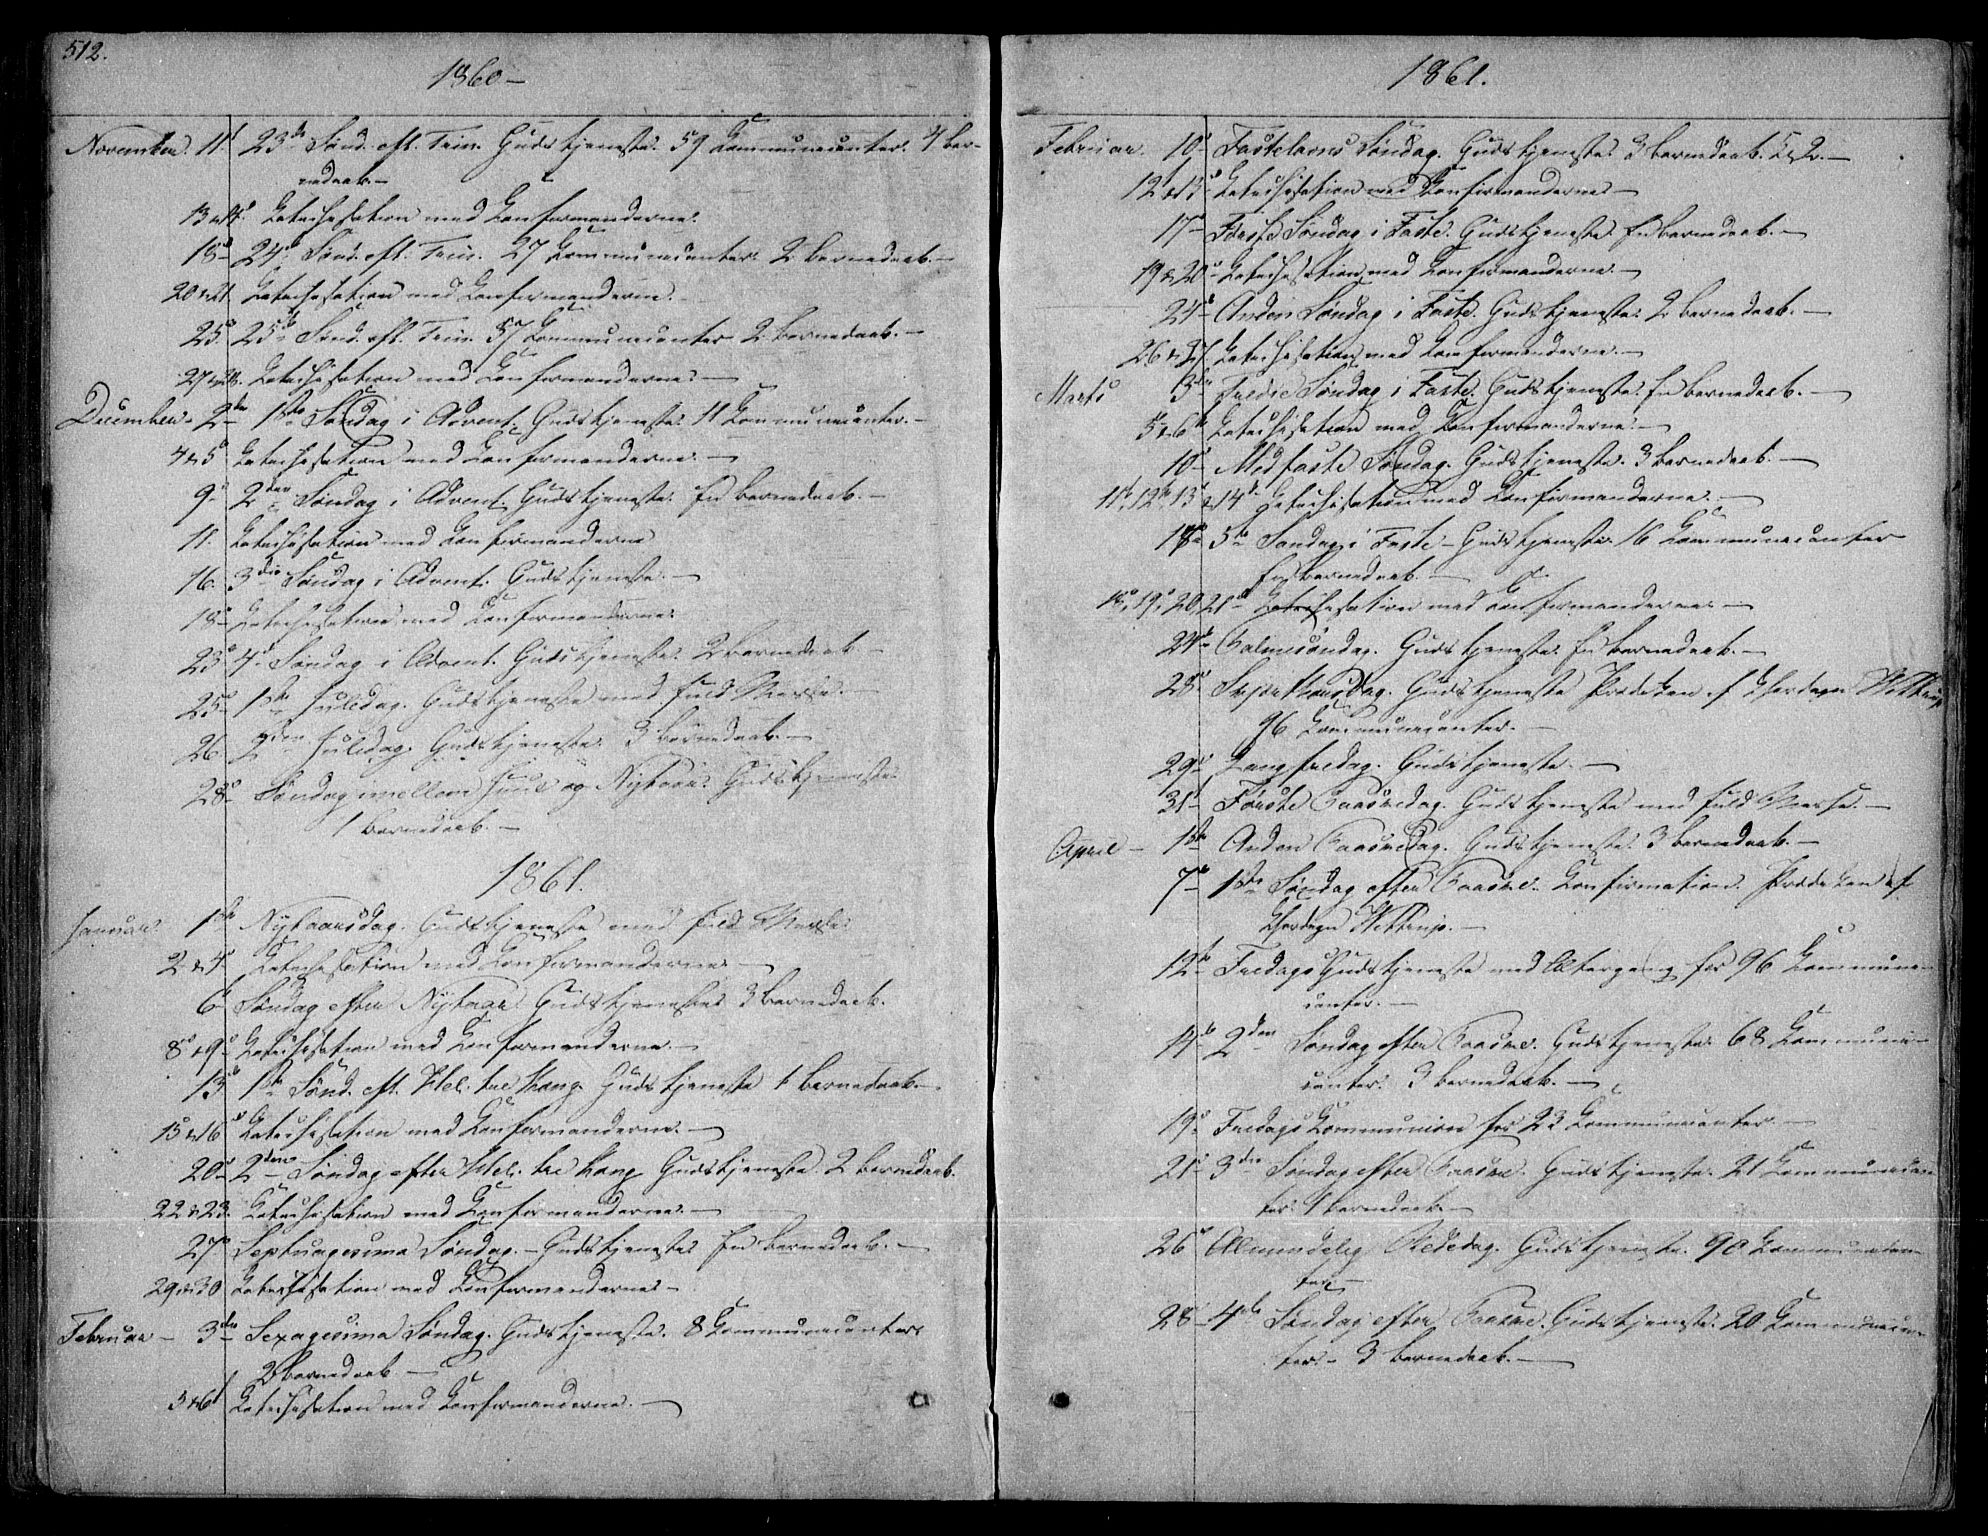 512.
1860 —
November. 11t 23de Sønd. eft. Trin. Gudstjeneste. 59 Communicanter. 4 Bar-
nedaab. —
13 & 14d Catechisation med Confirmanderne.
18d 24d Sønd. eft. Trin. 27 Communicanter 2 Barnedaab. —
20 & 21 Catechisation med Confirmanderne. —
25d 25de Sønd. eft. Trin. 57 Communicanter 2 Barnedaab. —
27 & 28. Catechisation med Confirmanderne. —
December — 2den 1ste Søndag i Advent. Gudstjeneste 11 Communicanter. —
4 & 5 Catechisation med Confirmanderne. —
9d 2den Søndag i Advent. Gudstjeneste. En Barnedaab. —
11. Catechisation med Confirmanderne
16. 3die Søndag i Advent. Gudstjeneste. —
18d Catechisation med Confirmanderne
23d 4d Søndag i Advent. Gudstjeneste. 2 Barnedaab —
25d 1ste Juledag. Gudstjeneste med fuld Messe. —
26. 2den Juledag. Gudstjeneste 3 Barnedaab. —
28d Søndag mellem Juul og Nytaar. Gudstjeneste
1 Barnedaab. —
1861.
Januar. 1ste Nytaarsdag. Gudstjeneste med fuld Messe
2 & 4d Catechisation med Confirmanderne —
6 Søndag efter Nytaar Gudstjeneste 3 Barnedaab.
8d & 9d Catechisation med Confirmanderne. —
13d 1ste Sønd. eft. Hel. tre Kong. Gudstjeneste 1 Barnedaab. —
15 & 16d Catechisation med Confirmanderne. —
20d 2den Søndag efter Hel. tre Kong Gudstjeneste. 2 Barnedaab.
22 & 23. Catechisation med Confirmanderne. —
27d Septuagesima Søndag. — Gudstjeneste En Barnedaab. —
29 & 30 Catechisation med Confirmanderne —
Februar — 3die Sexagesima Søndag. Gudstjeneste. 8 Communicanter
2 Barnedaab —
5 & 6t Catechisation med Confirmanderne. —
1861.
Februar. 10d Fastelavns Søndag. Gudstjeneste 3 Barnedaab. —
12 & 13d Catechisation med Confirmanderne —
17d Første Søndag i Faste. Gudstjeneste En Barnedaab. —
19 & 20d Catechisation med Confirmanderne. —
24d Anden Søndag i Faste. Gudstjeneste 2 Barnedaab. —
26 & 27. Catechisation med Confirmanderne. —
Marts 3die Tredie Søndag i Faste. Gudstjeneste. En Barnedaab. —
5 & 6te Catechisation med Confirmanderne. —
10d Midfaste Søndag. Gudstjeneste. 3 Barnedaab. —
11d, 12d, 13d & 14d Catechisation med Confirmanderne. —
17d 5te Søndag i Faste — Gudstjeneste 16 Communicanter
En Barnedaab. —
18d, 19d, 20, 21d Catechisation med Confirmanderne —
24d Palmesøndag. Gudstjeneste. En Barnedaab. —
28d Skjærtorsdag. Gudstjeneste Prædiken af Hr. Wettrup
96 Communicanter. —
29d Langfredag. Gudstjeneste. —
31d Første Paaskedag. Gudstjeneste med fuld Messe. —
April — 1ste Anden Paaskedag. Gudstjeneste 3 Barnedaab. —
7de 1ste Søndag efter Paaske. Confirmation. Prædiken af
Wettrup. —
12te Fredags Gudstjeneste med Altergang for 96 Communi-
canter. —
14de 2den Søndag efter Paaske. Gudstjeneste 68 Communi-
canter. 3 Barnedaab. —
19d Fredags Communion for 23 Communicanter. —
21d 3die Søndag efter Paaske. Gudstjeneste. 21 Communican
ter. 1 Barnedaab. —
26d Almindelig Bededag. Gudstjeneste. 90 Communican-
ter —
28d 4de Søndag efter Paaske. Gudstjeneste. 20 Communican-
ter. — 3 Barnedaab. —